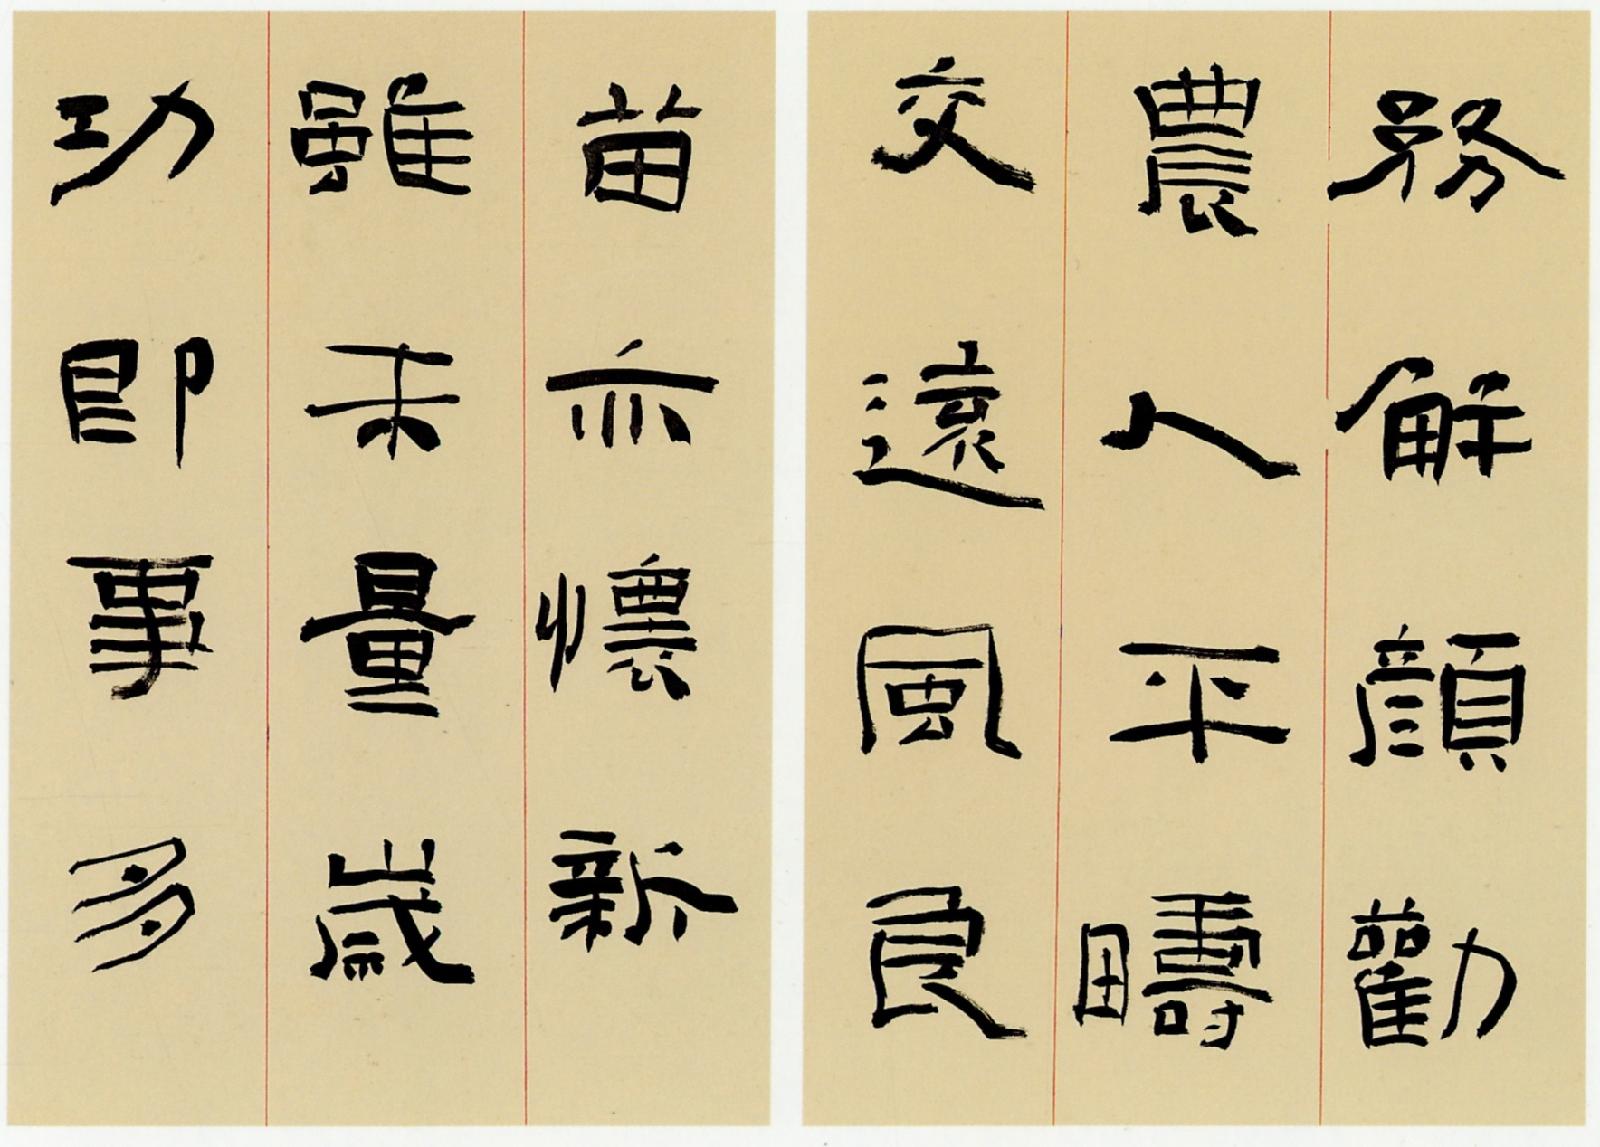 務解顏勸
農人平疇
交遠風良
苗亦懷新
雖未量歲
功即事多